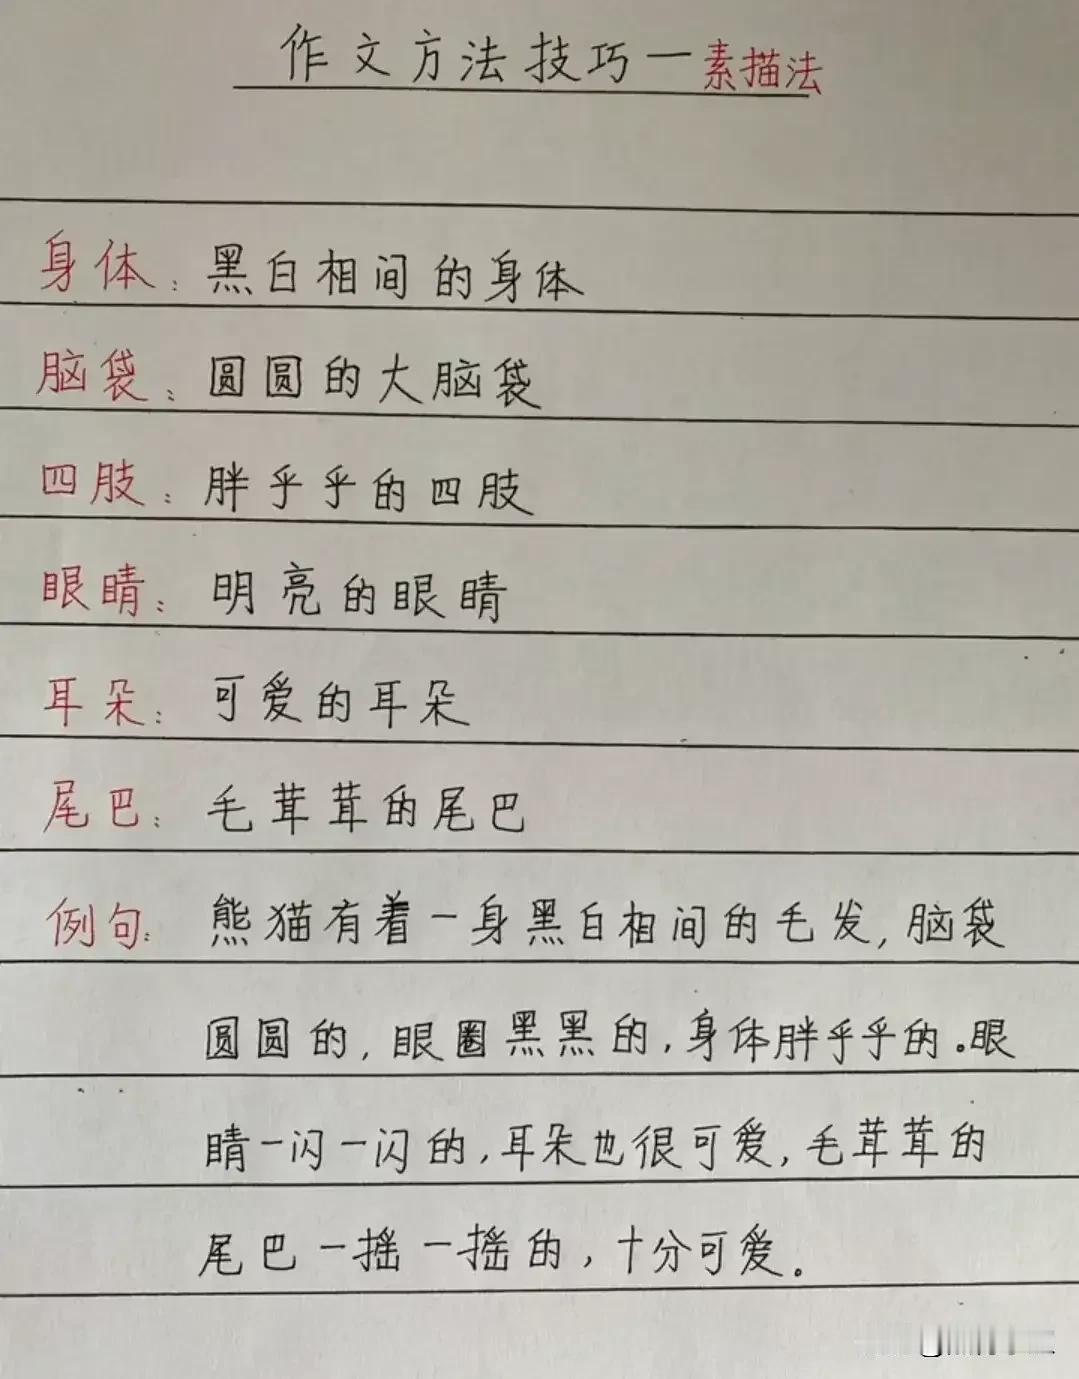 作文方法技巧一素描法
身体：黑白相间的身体
脑袋：圆圆的大脑袋
四肢：胖乎乎的四肢
眼睛：明亮的眼睛
耳朵：可爱的耳朵
尾巴：毛茸茸的尾巴
例句：熊猫有着一身黑白相间的毛发，脑袋
圆圆的，眼圈黑黑的，身体胖乎乎的。眼
睛一闪一闪的，耳朵也很可爱，毛茸茸的
尾巴一摇一摇的，十分可爱。